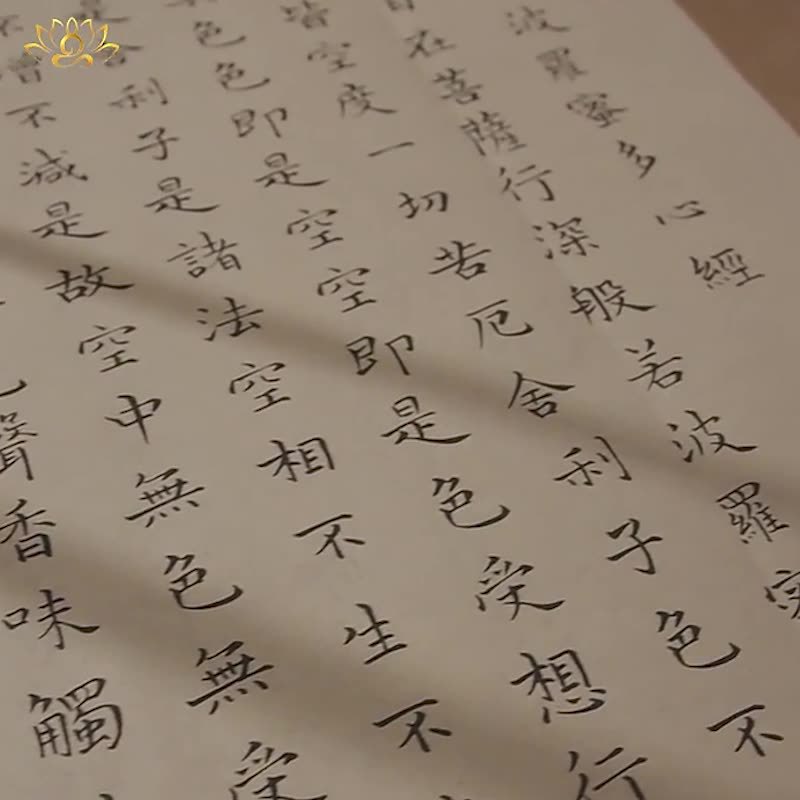 波羅蜜多心經
自在菩薩行深般若波羅
皆空度一切苦厄舍利子色不
色色即是空空即是色受想行
是舍利子是諸法空相不生不
不增不減是故空中無色無受
聲香味觸